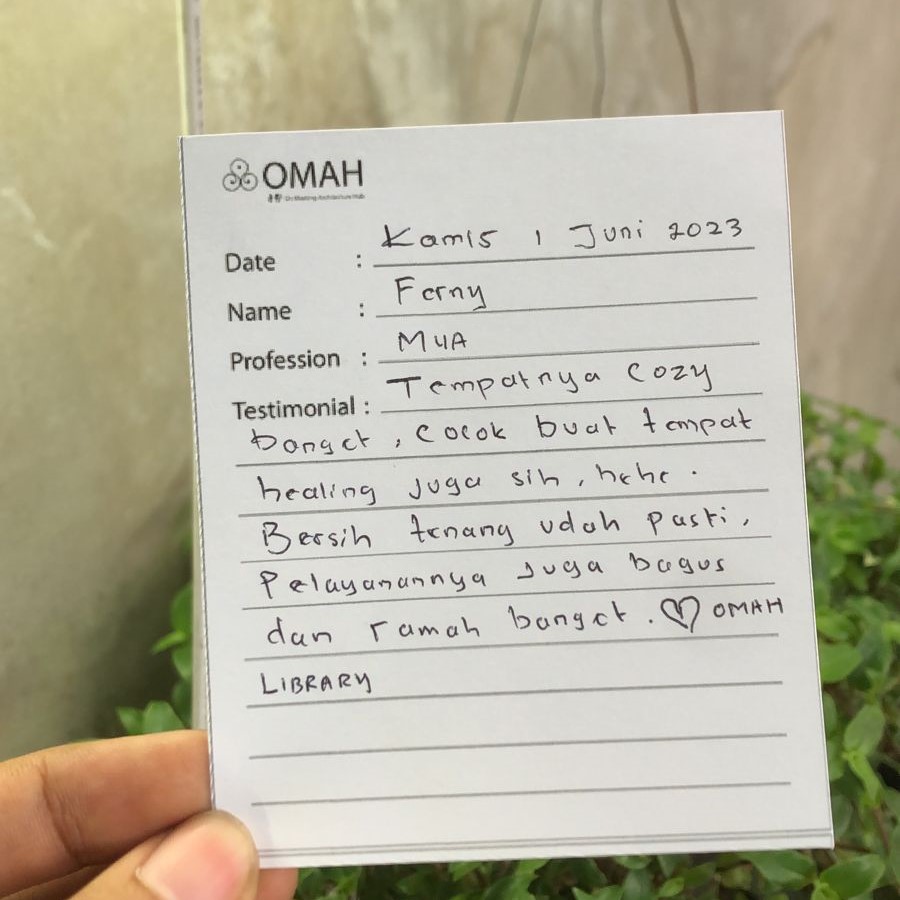 OMAH
Date : Kamis, 1 Juni 2023
Name : Ferny
Profession : MUA
Testimonial : Tempatnya cozy
banget, cocok buat tempat
healing juga sih, hehe.
Bersih tenang udah pasti,
Pelayanannya juga bagus
dan ramah banget. ♡ OMAH
LIBRARY